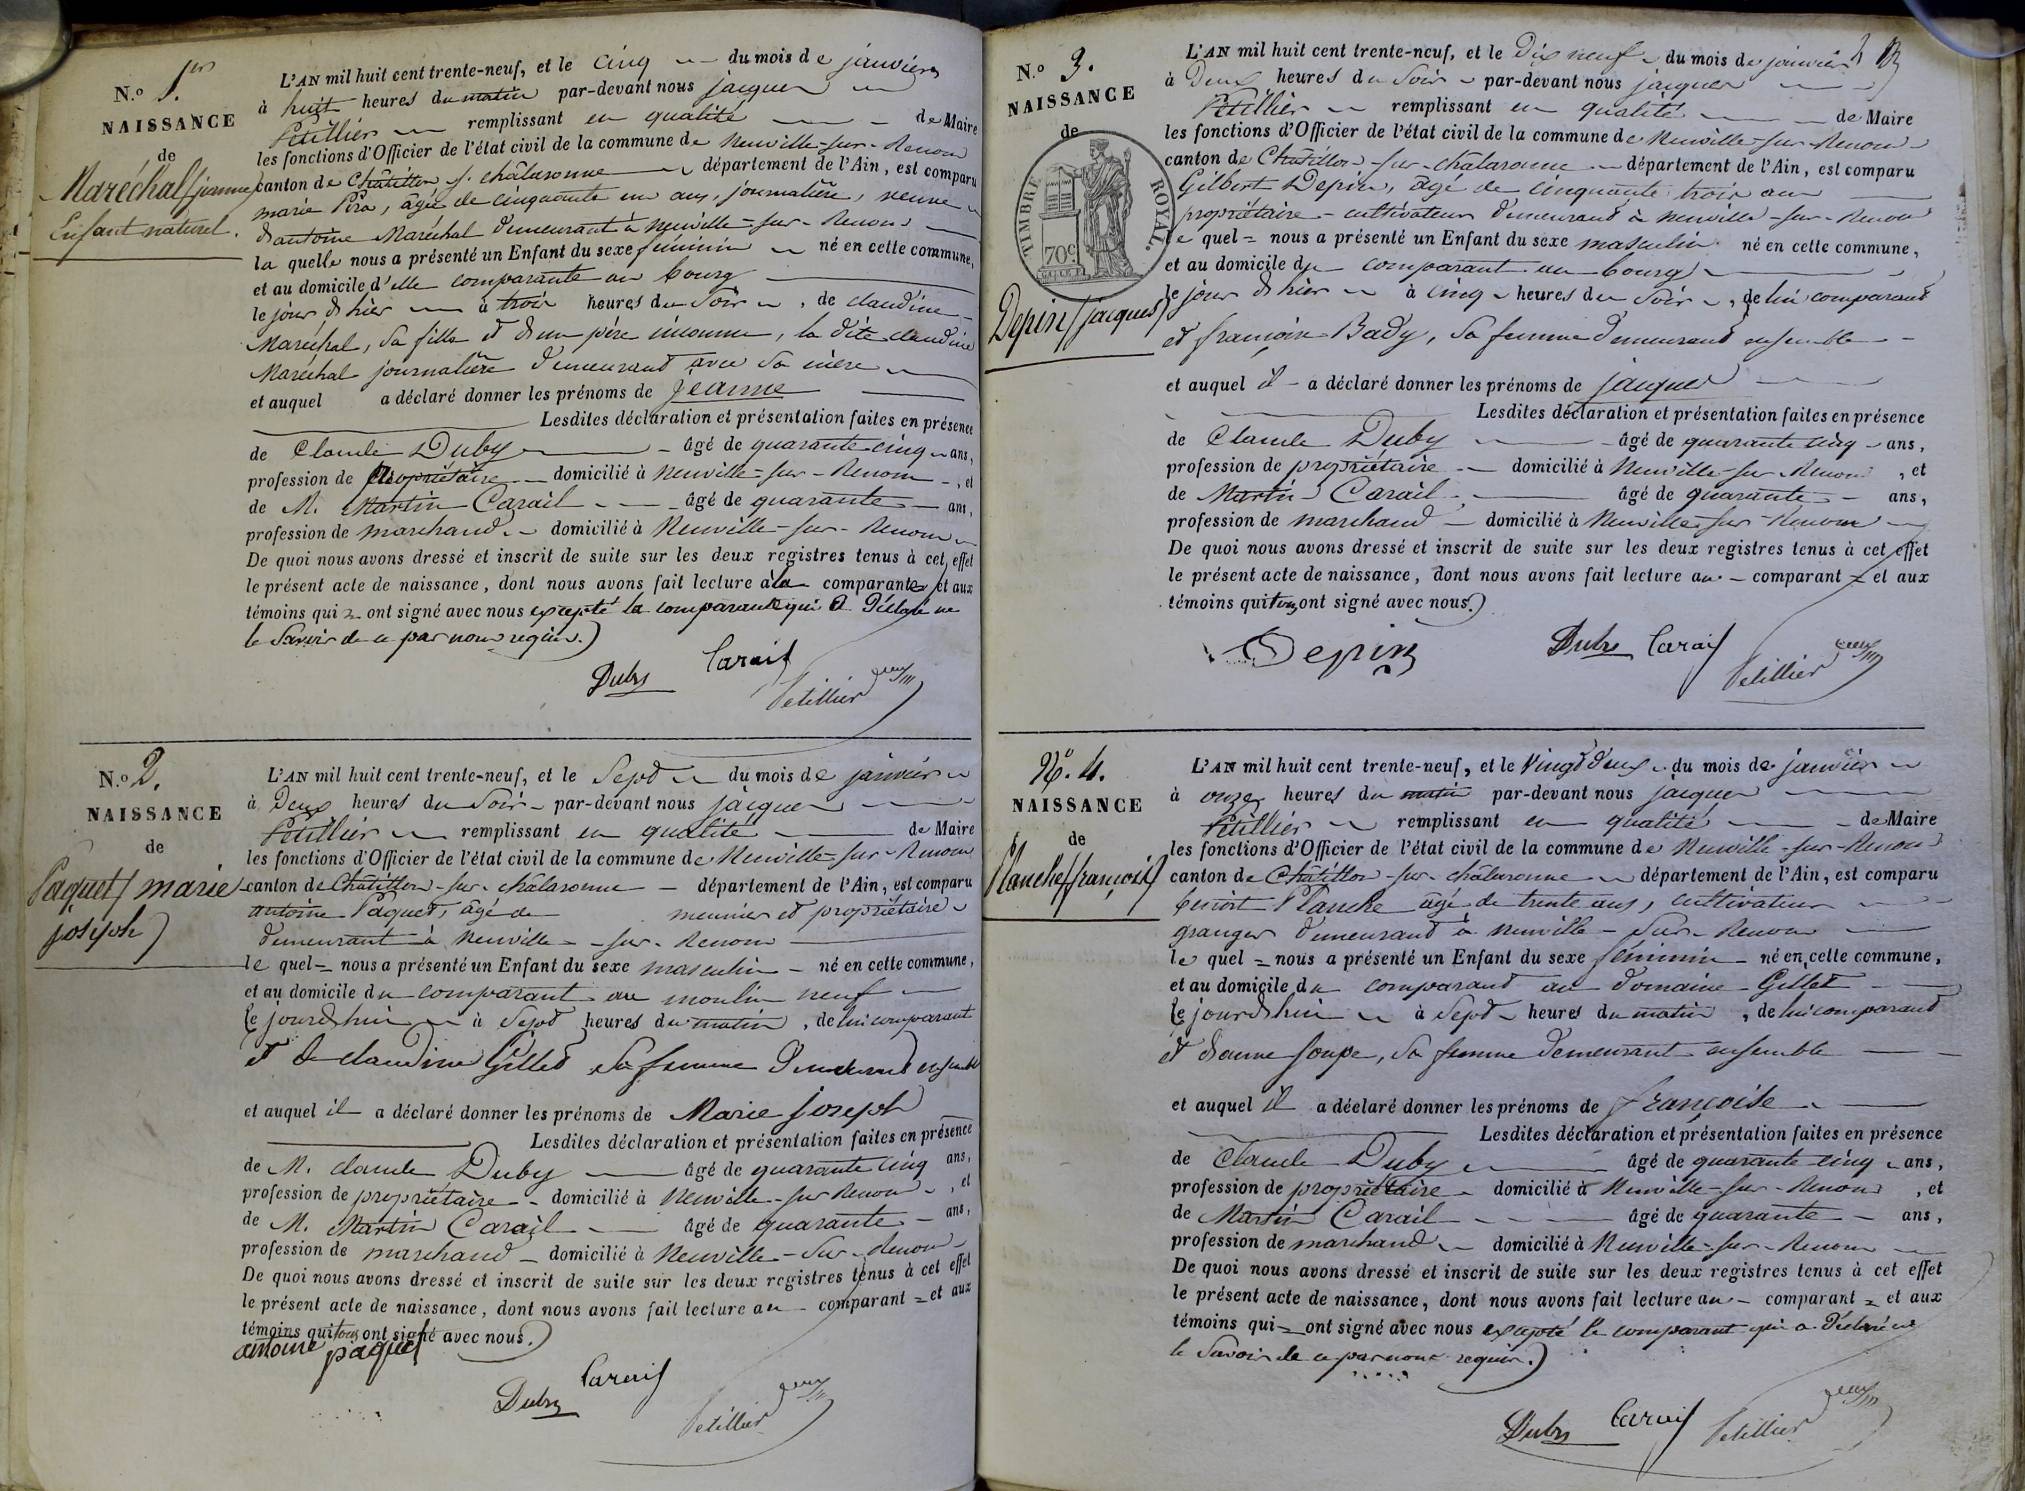 N.o 1.er
NAISSANCE
de
Maréchal (jeanne)
Enfant naturel.
L'AN mil huit cent trente-neuf, et le cinq du mois de janvier
à huit heures du matin par-devant nous jacques
Petillier remplissant en qualité de Maire
les fonctions d'Officier de l'état civil de la commune de Neuville-sur-Renom
canton de Châtillon s. châlaronne département de l'Ain, est comparu
marie Piro, âgée de cinquante un ans, journalière, veuve
d'antoine Maréchal demeurant à neuville-sur-Renom
la quelle nous a présenté un Enfant du sexe féminin né en cette commune,
et au domicile d'elle comparante au bourg
le jour d'hier à trois heures du Soir, de claudine
Maréchal, sa fille et d'un père inconnu, la dite claudine
Maréchal journalière demeurant avec sa mère
et auquel a déclaré donner les prénoms de jeanne
Lesdites déclaration et présentation faites en présence
de Claude Duby âgé de quarante cinq ans,
profession de propriétaire domicilié à Neuville-sur-Renom, et
de M. Martin Carail âgé de quarante ans,
profession de marchand domicilié à Neuville-sur-Renom
De quoi nous avons dressé et inscrit de suite sur les deux registres tenus à cet effet
le présent acte de naissance, dont nous avons fait lecture à la comparante et aux
témoins qui ont signé avec nous excepté la comparante qui a déclaré ne
le Savoir de ce par nous requise.
Duby Carail
Petillier
N.o 2.
NAISSANCE
de
Paquet (marie
joseph)
L'AN mil huit cent trente-neuf, et le Sept du mois de janvier
à Deux heures du Soir par-devant nous jacques
Petillier remplissant en qualité de Maire
les fonctions d'Officier de l'état civil de la commune de Neuville-sur-Renom
canton de Châtillon-sur-châlaronne département de l'Ain, est comparu
antoine Paquet, âgé de meunier et propriétaire
demeurant à Neuville-sur-Renom
le quel = nous a présenté un Enfant du sexe masculin né en cette commune,
et au domicile du comparant au moulin neuf
le jourd'hui à Sept heures du matin, de lui comparant
et de claudine Gillet sa femme demeurant ensemble
et auquel il a déclaré donner les prénoms de Marie joseph
Lesdites déclaration et présentation faites en présence
de M. claude Duby âgé de quarante cinq ans,
profession de propriétaire domicilié à Neuville-sur-Renom, et
de M. Martin Carail âgé de quarante ans,
profession de marchand domicilié à Neuville-sur-Renom
De quoi nous avons dressé et inscrit de suite sur les deux registres tenus à cet effet
le présent acte de naissance, dont nous avons fait lecture au comparant = et aux
témoins qui tous ont signé avec nous.
antoine paquet
Duby Carail
Petillier
N.o 3.
NAISSANCE
de
TIMBRE ROYAL.
70c
Depin (jacques)
L'AN mil huit cent trente-neuf, et le Dix neuf du mois de janvier
à Deux heures du Soir par-devant nous jacques
Petillier remplissant en qualité de Maire
les fonctions d'Officier de l'état civil de la commune de Neuville-sur-Renom
canton de Châtillon-sur-châlaronne département de l'Ain, est comparu
Gilbert Depin, âgé de cinquante trois ans
propriétaire-cultivateur demeurant à neuville-sur-Renom
le quel = nous a présenté un Enfant du sexe masculin né en cette commune,
et au domicile du comparant au bourg
le jour d'hier à cinq heures du Soir, de lui comparant
et françoise Bady, sa femme demeurant ensemble
et auquel il a déclaré donner les prénoms de jacques
Lesdites déclaration et présentation faites en présence
de Claude Duby âgé de quarante cinq ans,
profession de propriétaire domicilié à Neuville-sur-Renom, et
de Martin Carail âgé de quarante ans,
profession de marchand domicilié à Neuville-sur-Renom
De quoi nous avons dressé et inscrit de suite sur les deux registres tenus à cet effet
le présent acte de naissance, dont nous avons fait lecture au comparant = et aux
témoins qui tous ont signé avec nous.
Depin Duby Carail
Petillier
N.o 4.
NAISSANCE
de
Planche (françoise)
L'AN mil huit cent trente-neuf, et le Vingt deux du mois de janvier
à onze heures du matin par-devant nous jacques
Petillier remplissant en qualité de Maire
les fonctions d'Officier de l'état civil de la commune de Neuville-sur-Renom
canton de Châtillon-sur-châlaronne département de l'Ain, est comparu
benoit Planche âgé de trente ans, cultivateur
granger demeurant à neuville-sur-Renom
le quel = nous a présenté un Enfant du sexe féminin né en cette commune,
et au domicile du comparant au domaine Gillet
le jourd'hui à Sept heures du matin, de lui comparant
et d'anne soupe, sa femme demeurant ensemble
et auquel il a déclaré donner les prénoms de françoise
Lesdites déclaration et présentation faites en présence
de Claude Duby âgé de quarante cinq ans,
profession de propriétaire domicilié à Neuville-sur-Renom, et
de Martin Carail âgé de quarante ans,
profession de marchand domicilié à Neuville-sur-Renom
De quoi nous avons dressé et inscrit de suite sur les deux registres tenus à cet effet
le présent acte de naissance, dont nous avons fait lecture au comparant = et aux
témoins qui = ont signé avec nous excepté le comparant qui a déclaré ne
le Savoir de ce par nous requis.
Duby Carail Petillier